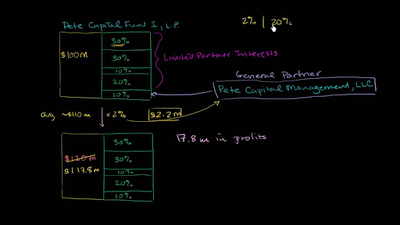 Pete Capital Fund I, L.P.
2% | 20%
$100M
30%
30%
10%
20%
10%
Limited Partner Interests
General Partner
Pete Capital Management, LLC
avg ~$110m
x2%
$2.2m
17.8m in profits
$117.8m
30%
30%
10%
20%
10%